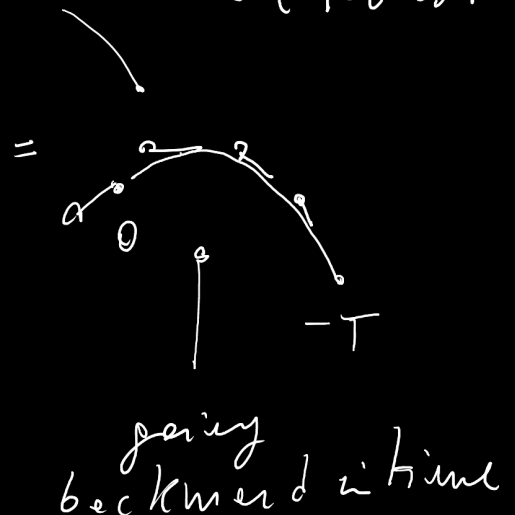 =
0
-T
going
backward in time